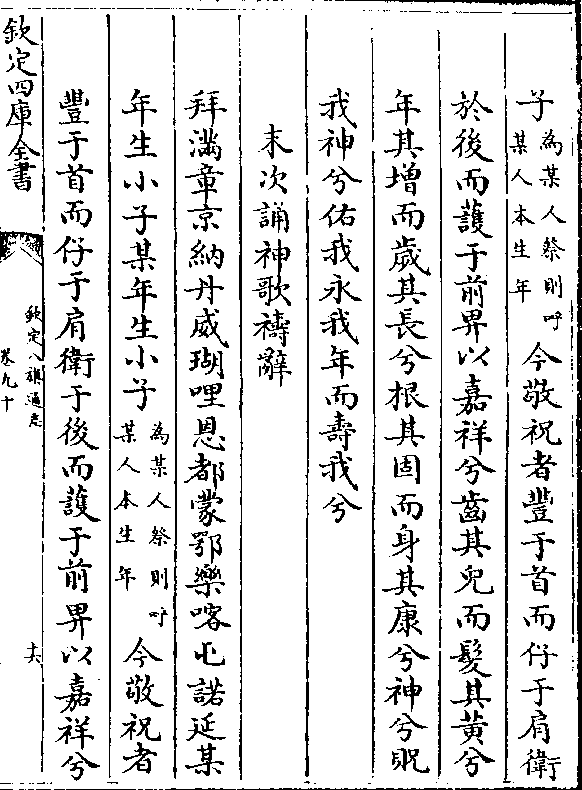 子為某人祭則呼某人本生年今敬祝者豐于首而仔于肩衛
於後而護于前畀以嘉祥兮齒其兒而髮其黃兮
年其增而歲其長兮根其固而身其康兮神兮貺
我神兮佑我永我年而壽我兮
末次誦神歌禱辭
拜滿章京納丹威瑚哩恩都蒙鄂樂喀屯諾延某
年生小子某年生小子為某人祭則呼某人本生年今敬祝者
豐于首而仔于肩衛于後而護于前畀以嘉祥兮
欽定四庫全書
欽定八旗通志
卷九十